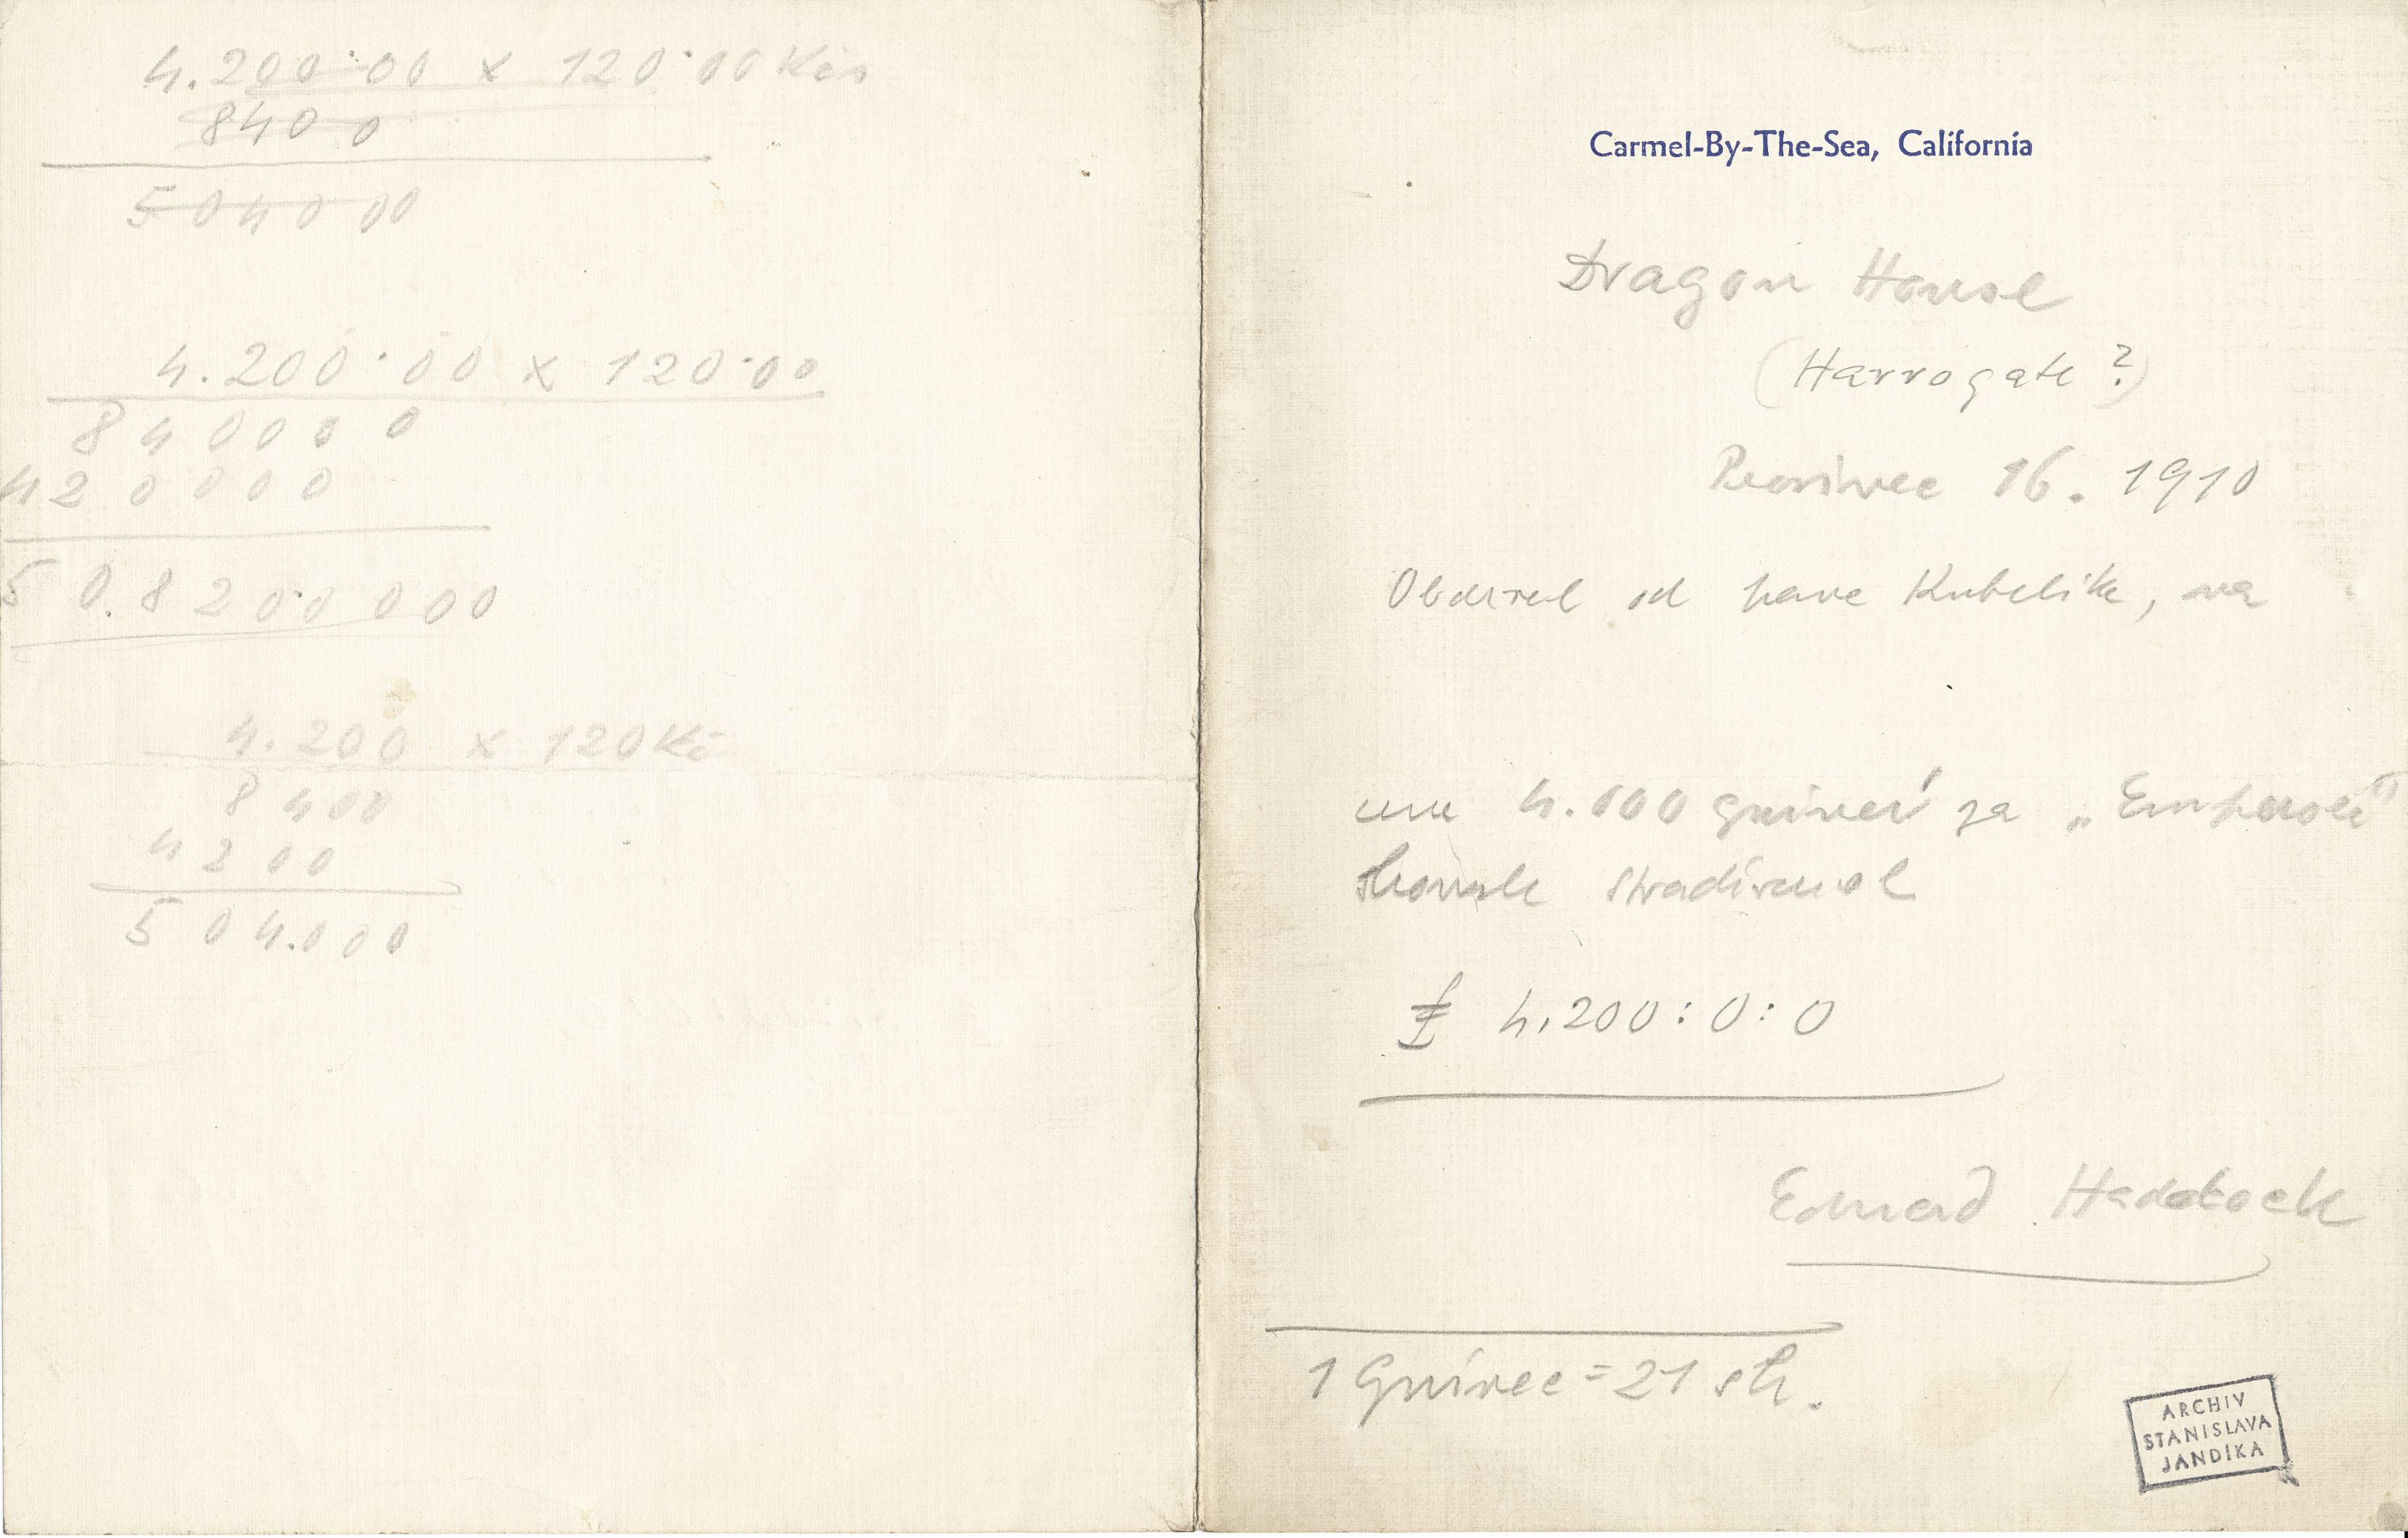 4.200·00 x 120·00 Kčs
8400
504000
4.200·00 x 120·00
840000
420000
50.8200000
4.200 x 120 Kč
8400
4200
504.000
Carmel-By-The-Sea, California
Dragon House
(Harrogate ?)
Prosinec 16. 1910
Obdržel od pana Kubelika, na
4.000 guineí za „Emperor"
housle Stradivariol
£ 4.200:0:0
Eduard Haddock
1 Guinee = 21 sh.
ARCHIV
STANISLAVA
JANDÍKA